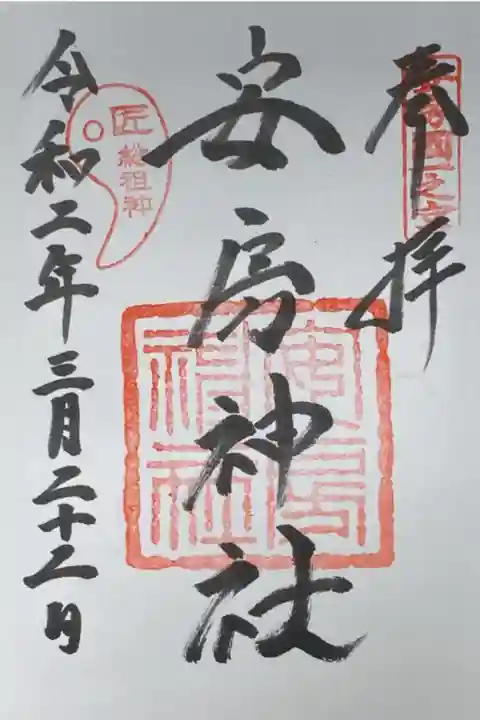 奉拝
安房神社
匠総祖神
令和二年三月二十二日
安房
神社